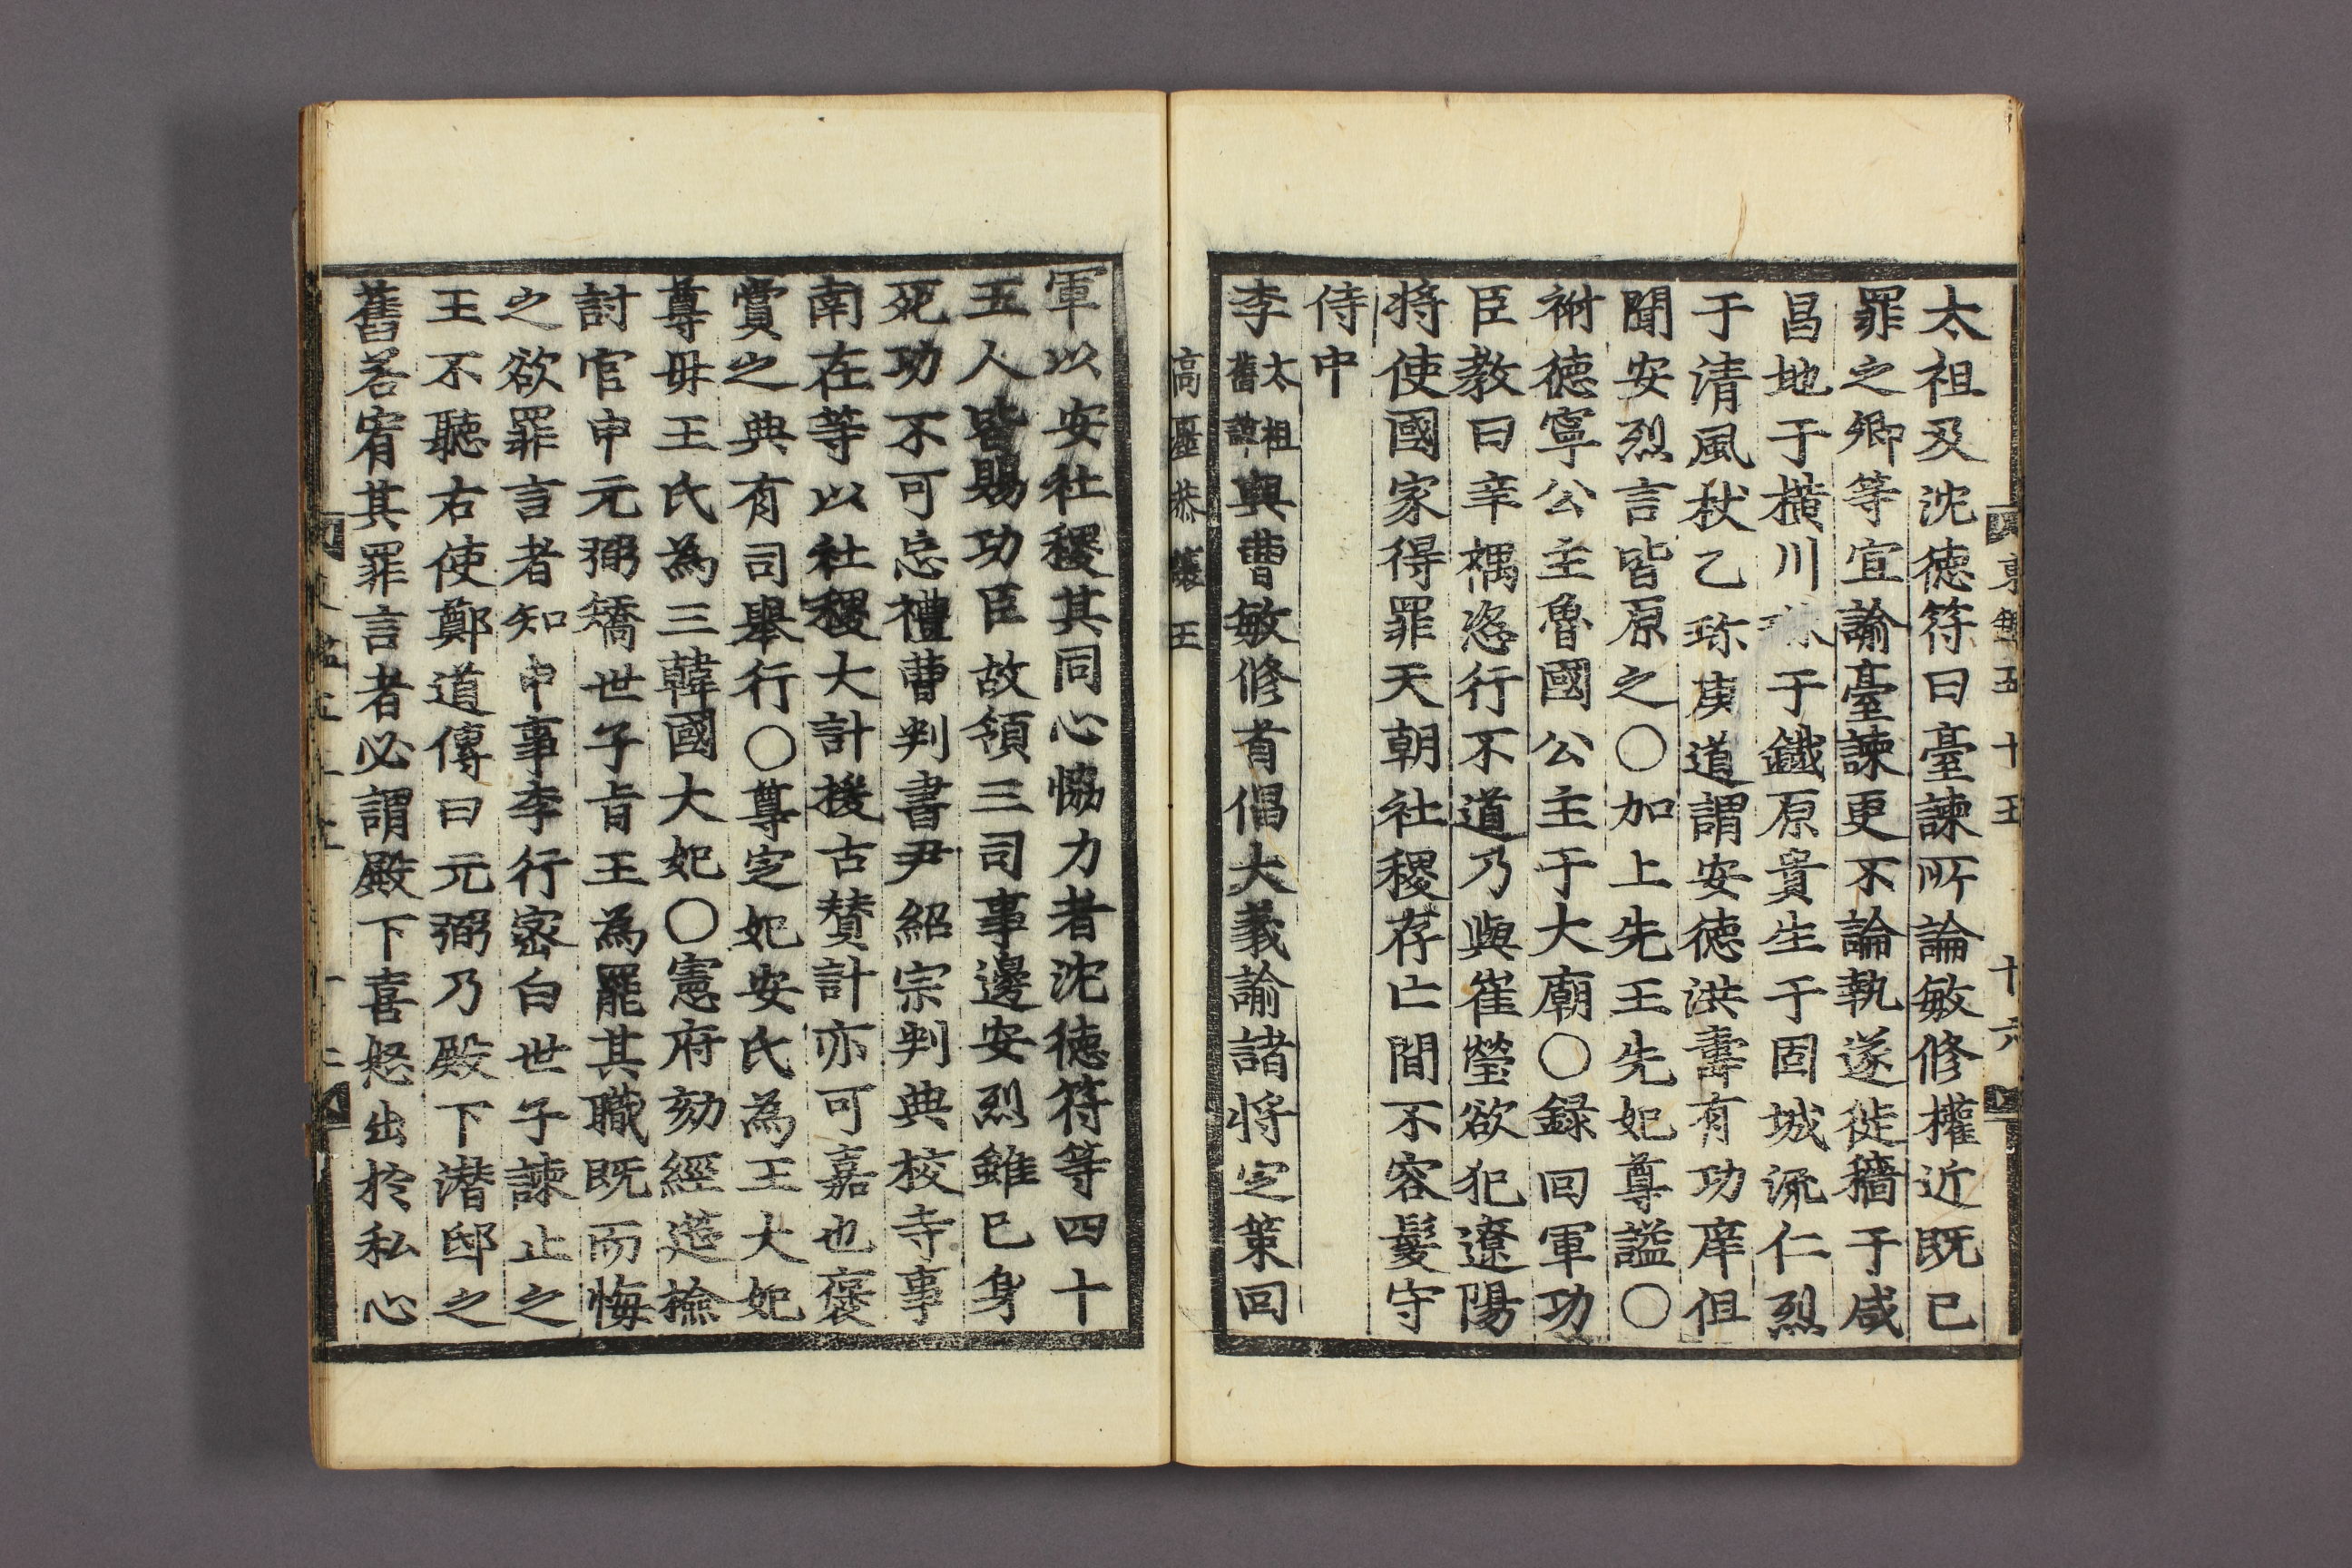 太祖及沈德符曰臺諫所論敏修權近既已
罪之卿等宜諭臺諫更不論執遂徙穡于咸
昌地于橫川 于鐵原貴生于固城流仁烈
于清風杖乙珍庚道謂安德洪壽有功庠但
聞安烈言皆原之〇加上先王先妃尊謚〇
祔德寧公主魯國公主于大廟〇録回軍功
臣教曰辛禑恣行不道乃與崔瑩欲犯遼陽
將使國家得罪天朝社稷存亡間不容髮守
侍中
李太祖舊諱與曹敏修首倡大義諭諸将定策回
高麗恭讓王
軍以安社稷其同心恊力者沈德符等四十
五人皆賜功臣故領三司事邊安烈雖已身
死功不可忘禮曹判書尹紹宗判典校寺事
南在等以社稷大計援古賛計亦可嘉也褒
賞之典有司舉行〇尊定妃安氏為王大妃
尊母王氏為三韓國大妃〇憲府劾經筵撿
討官申元弼矯世子旨王為罷其職既而悔
之欲罪言者知申事李行密白世子諫止之
王不聽右使鄭道傳曰元弼乃殿下潛邸之
舊若宥其罪言者必謂殿下喜怒出於私心